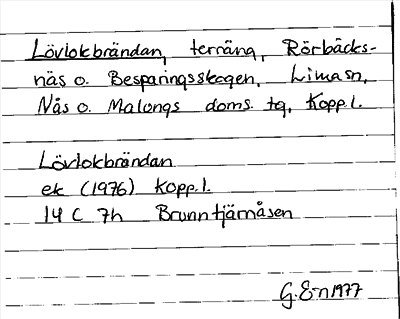 Lövlokbrändan, terräng, Rörbäcks-
näs o. Besparingsskogen, Lima sn,
Nås o. Malungs doms. tg, Kopp.l.
Lövlokbrändan
ek (1976) Kopp.l.
14 C 7h Brunntjärnåsen
G.E-n 1977